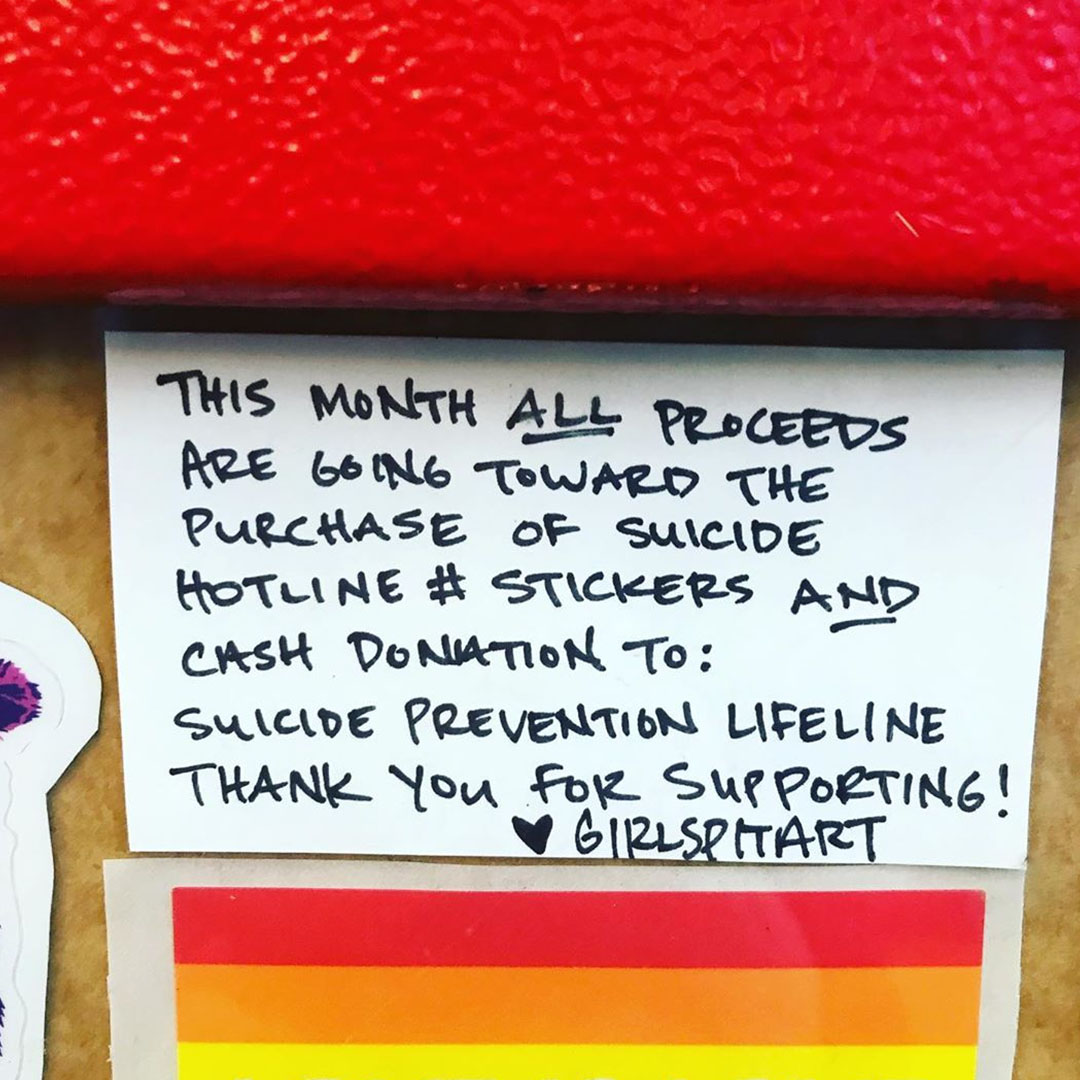 THIS MONTH ALL PROCEEDS
ARE GOING TOWARD THE
PURCHASE OF SUICIDE
HOTLINE # STICKERS AND
CASH DONATION TO:
SUICIDE PREVENTION LIFELINE
THANK YOU FOR SUPPORTING!
♥ GIRLSPITART